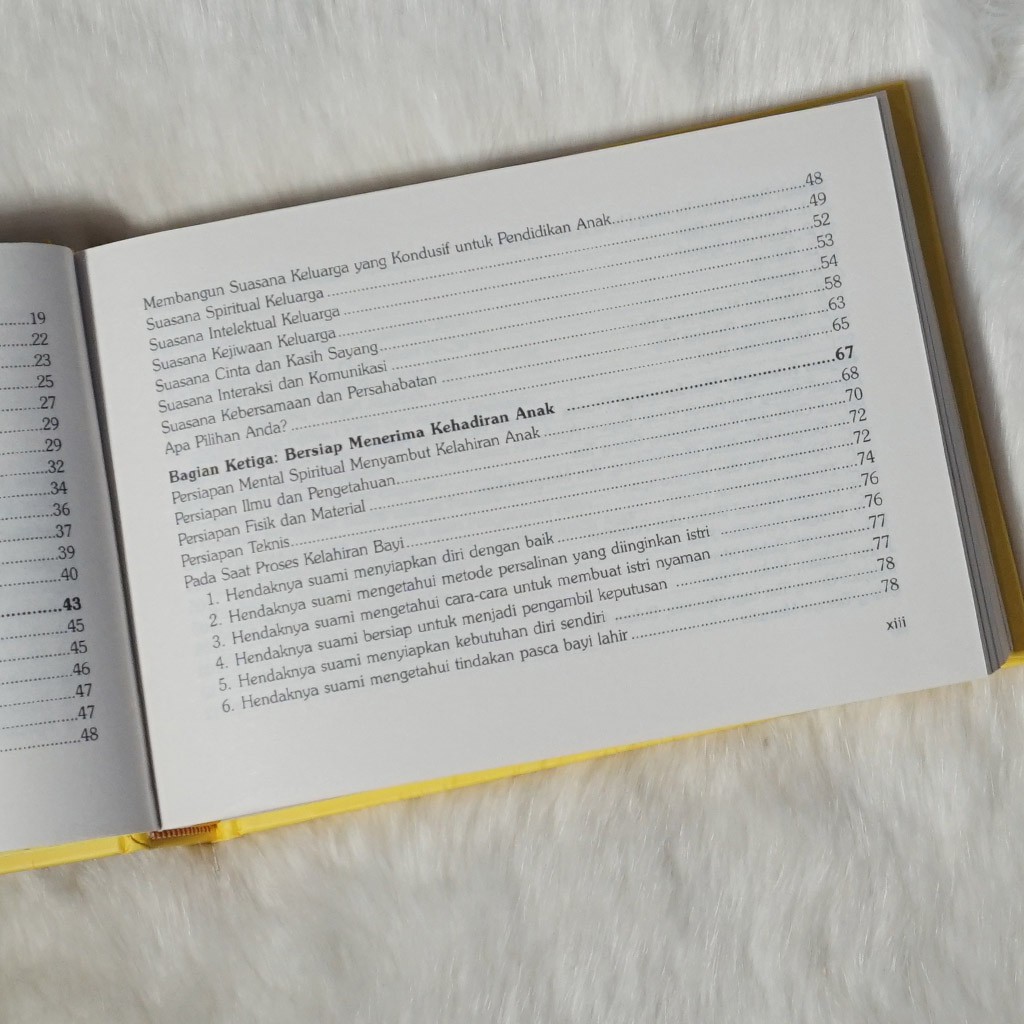 ......19
......22
......23
......25
......27
......29
......29
......32
......34
......36
......37
......39
......40
......43
......45
......45
......46
......47
......47
......48
Membangun Suasana Keluarga yang Kondusif untuk Pendidikan Anak......48
Suasana Spiritual Keluarga ......49
Suasana Intelektual Keluarga ......52
Suasana Kejiwaan Keluarga ......53
Suasana Cinta dan Kasih Sayang ......54
Suasana Interaksi dan Komunikasi ......58
Suasana Kebersamaan dan Persahabatan ......63
Apa Pilihan Anda? ......65
Bagian Ketiga: Bersiap Menerima Kehadiran Anak ......67
Persiapan Mental Spiritual Menyambut Kelahiran Anak ......68
Persiapan Ilmu dan Pengetahuan......70
Persiapan Fisik dan Material ......72
Persiapan Teknis......72
Pada Saat Proses Kelahiran Bayi ......74
1. Hendaknya suami menyiapkan diri dengan baik ......76
2. Hendaknya suami mengetahui metode persalinan yang diinginkan istri ......76
3. Hendaknya suami mengetahui cara-cara untuk membuat istri nyaman ......77
4. Hendaknya suami bersiap untuk menjadi pengambil keputusan ......77
5. Hendaknya suami menyiapkan kebutuhan diri sendiri ......78
6. Hendaknya suami mengetahui tindakan pasca bayi lahir ......78
xiii